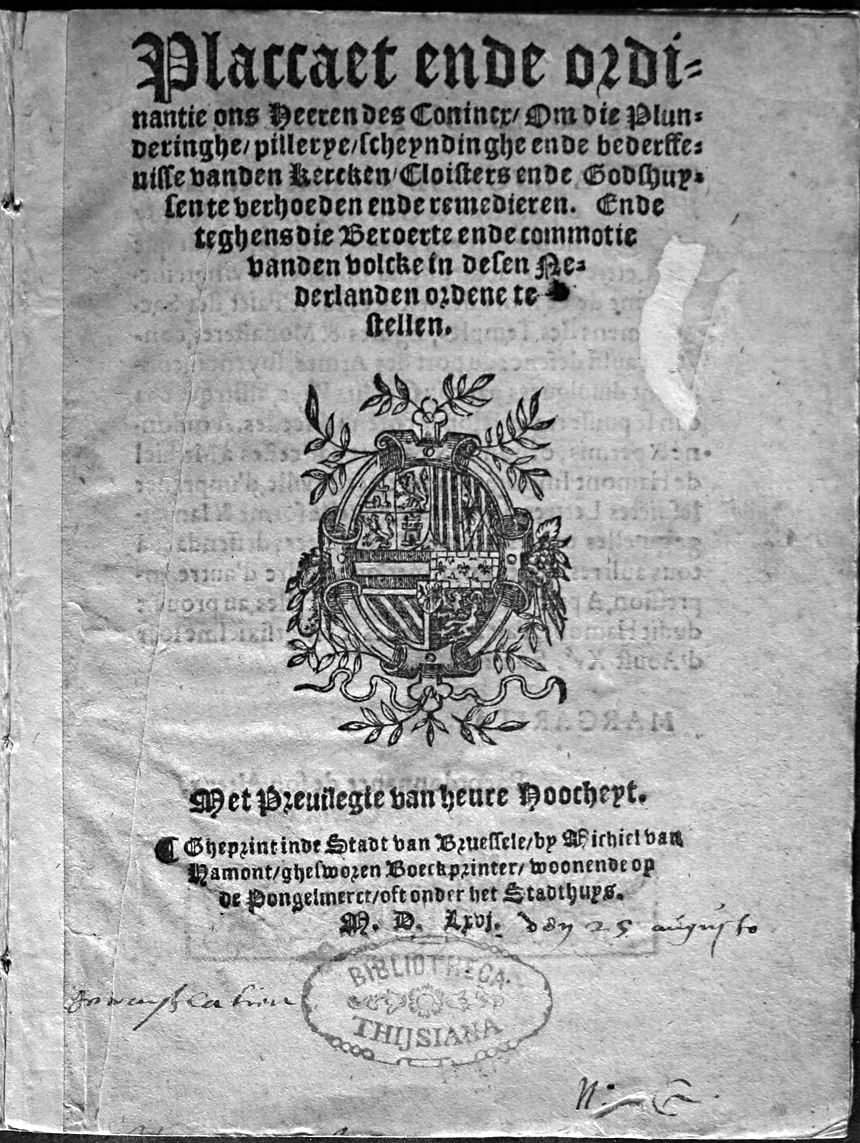 Placcaet ende ordi⸗
nantie ons Heeren des Conincx/ Om die Plun⸗
deringhe/ pillerye/ scheyndinghe ende bederffe⸗
nisse vanden Kercken/ Cloisters ende Godshuy⸗
sen te verhoeden ende remedieren. Ende
teghens die Beroerte ende commotie
vanden volcke in desen Ne⸗
derlanden ordene te
stellen.
Met Preuilegie van heure Hoocheyt.
Gheprint inde Stadt van Bruessele/ by Michiel van
Hamont/ ghesworen Boeckprinter/ woonende op
de Pongelmerct/ oft onder het Stadthuys.
M. D. Lxvj. den 25 augusto
BIBLIOTHECA
THIJSIANA